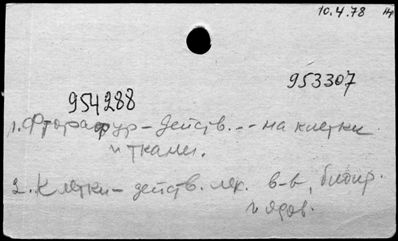 10.4.78
953307
954288
1. Фторафур - действ. - - на клетки
и ткани.
2. Клетки - действ. лек. в-в,
и ядов.